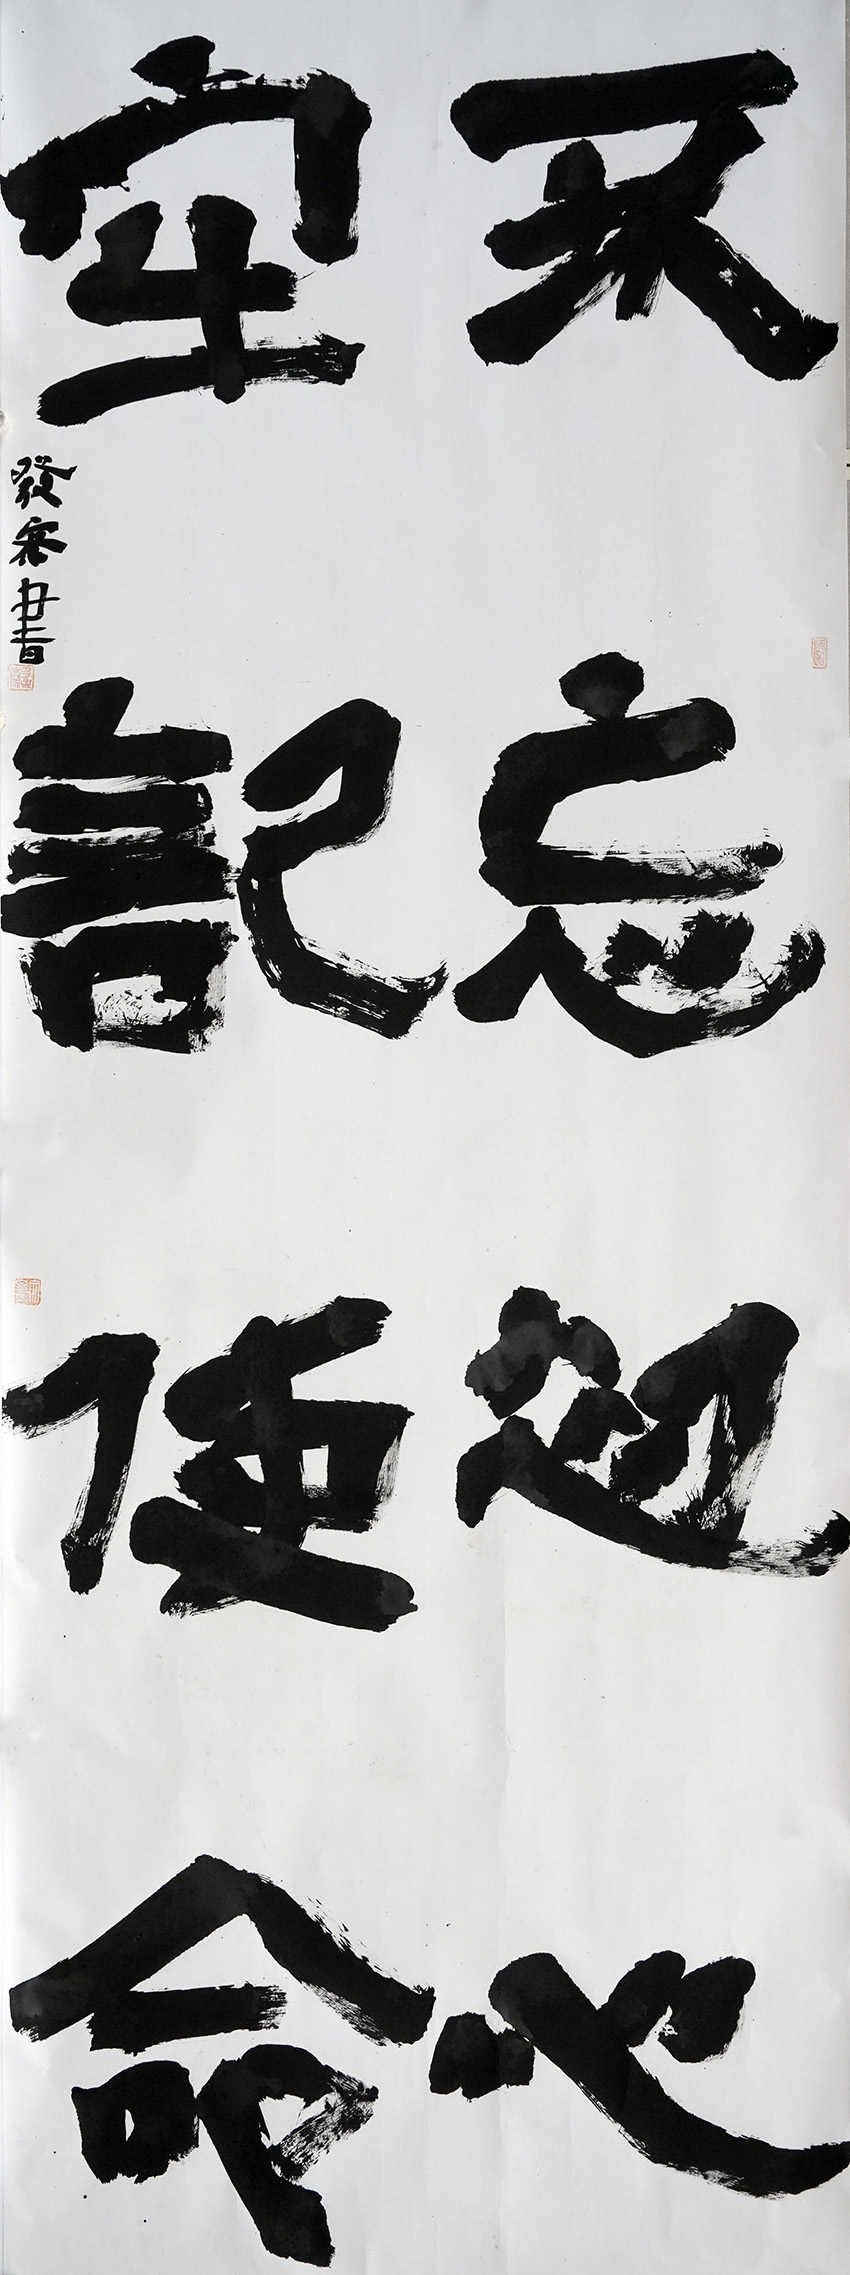 不忘初心
牢記使命
發容書